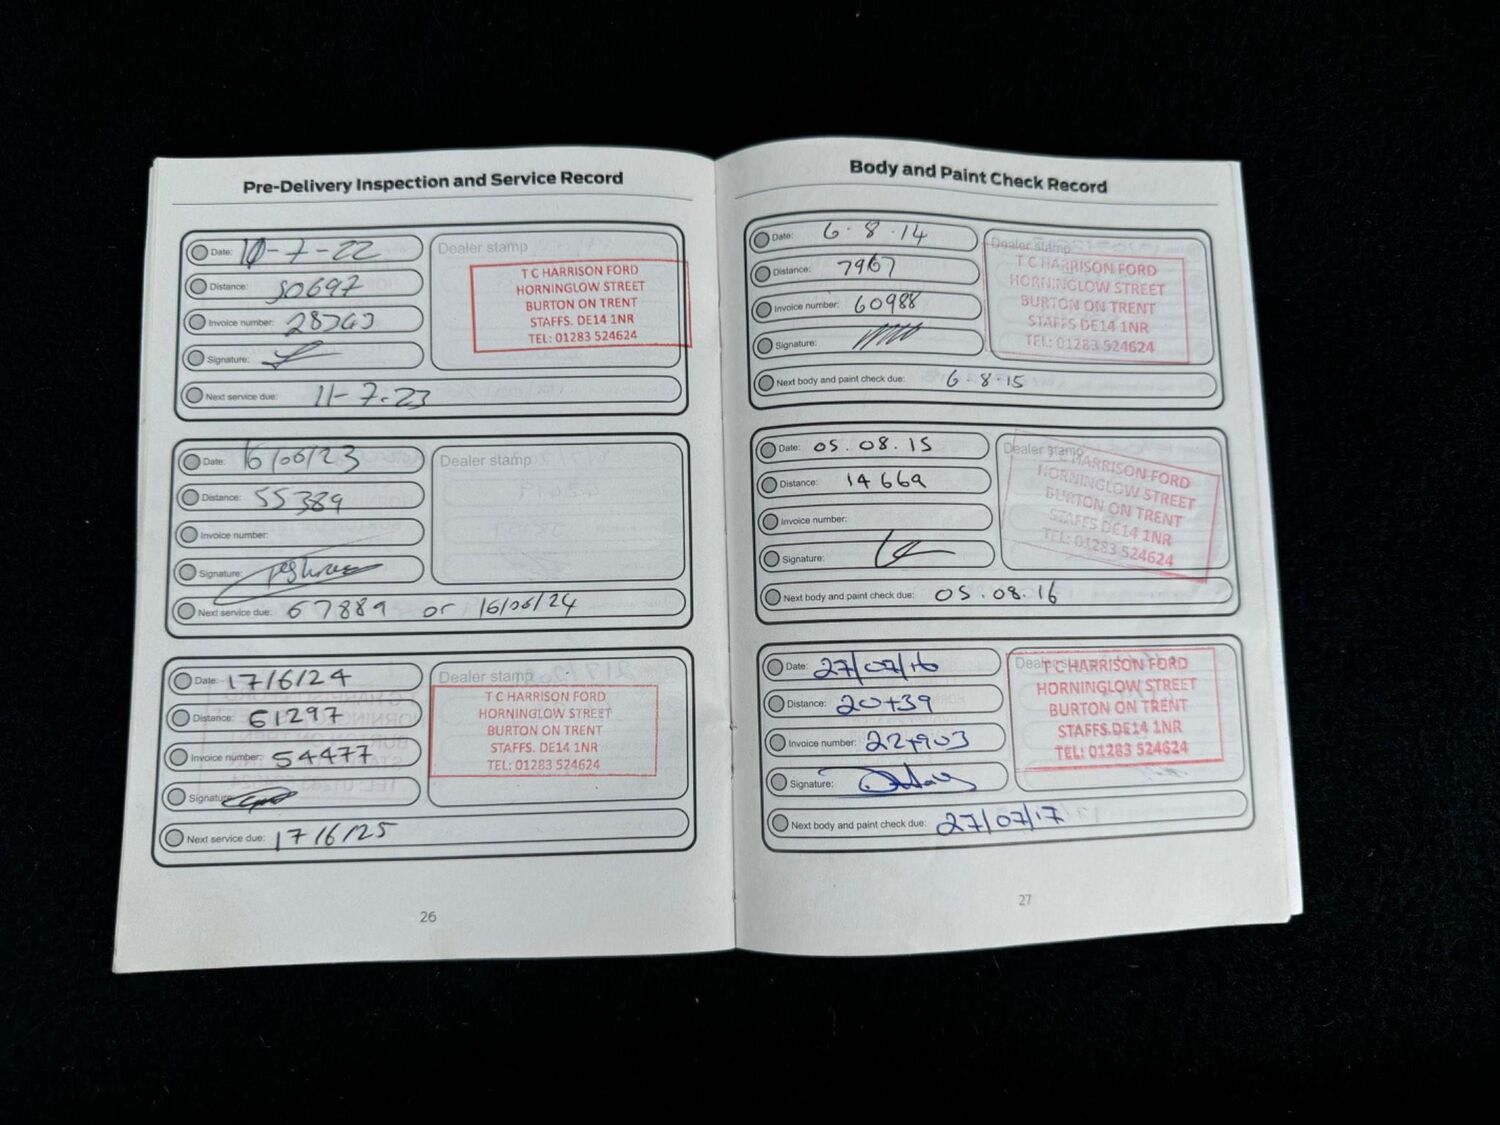 Pre-Delivery Inspection and Service Record
Date: 10-7-22
Distance: 50697
Invoice number: 28363
Signature:
Next service due: 11-7-23
Dealer stamp
T C HARRISON FORD
HORNINGLOW STREET
BURTON ON TRENT
STAFFS. DE14 1NR
TEL: 01283 524624
Date: 16/06/23
Distance: 55389
Invoice number:
Signature:
Next service due: 67889 or 16/06/24
Dealer stamp
Date: 17/6/24
Distance: 61297
Invoice number: 54477
Signature:
Next service due: 17/6/25
Dealer stamp
T C HARRISON FORD
HORNINGLOW STREET
BURTON ON TRENT
STAFFS. DE14 1NR
TEL: 01283 524624
26
Body and Paint Check Record
Date: 6.8.14
Distance: 7967
Invoice number: 60988
Signature:
Next body and paint check due: 6.8.15
Dealer stamp
T C HARRISON FORD
HORNINGLOW STREET
BURTON ON TRENT
STAFFS DE14 1NR
TEL: 01283 524624
Date: 05.08.15
Distance: 14669
Invoice number:
Signature:
Next body and paint check due: 05.08.16
Dealer stamp
T C HARRISON FORD
HORNINGLOW STREET
BURTON ON TRENT
STAFFS DE14 1NR
TEL: 01283 524624
Date: 27/07/16
Distance: 20739
Invoice number: 227903
Signature:
Next body and paint check due: 27/07/17
T C HARRISON FORD
HORNINGLOW STREET
BURTON ON TRENT
STAFFS. DE14 1NR
TEL: 01283 524624
27